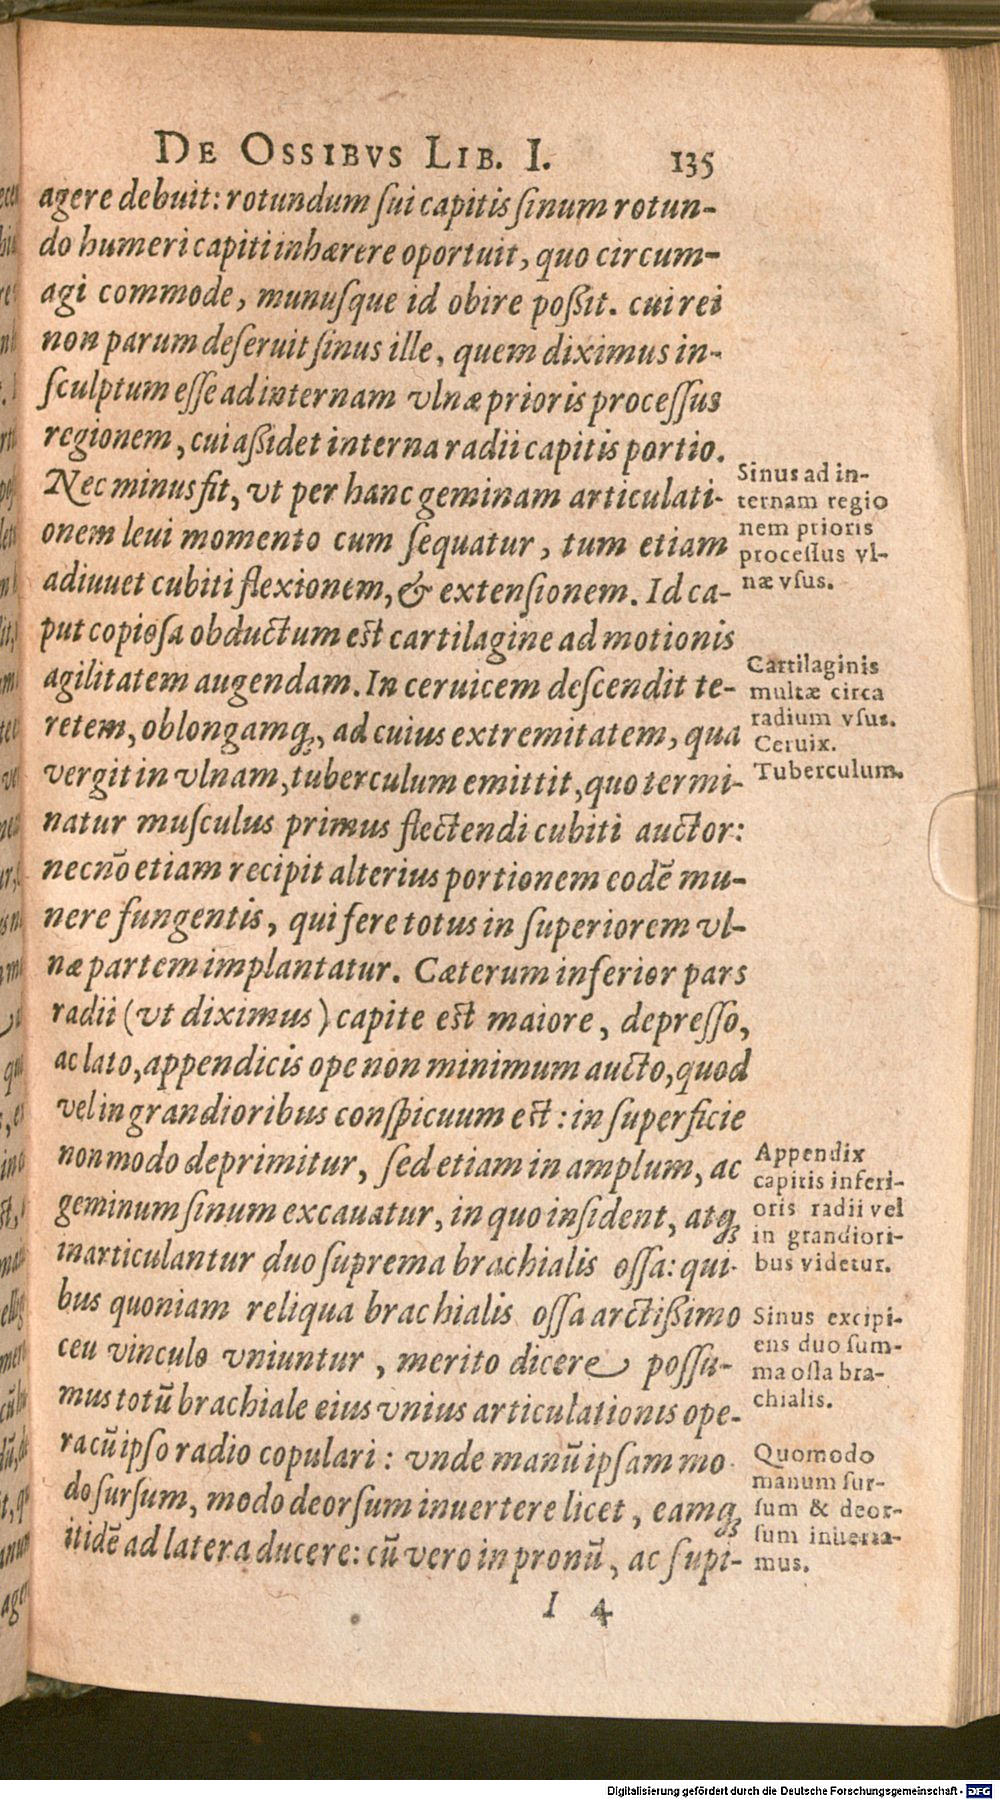 DE OSSIBVS LIB. I. 135
agere debuit: rotundum ſui capitis ſinum rotun-
do humeri capiti inhærere oportuit, quo circum-
agi commode, munuſque id obire poßit. cui rei
non parum deſeruit ſinus ille, quem diximus in-
ſculptum eſſe ad internam vlnæ prioris proceſſus
regionem, cui aßidet interna radii capitis portio.
Nec minus fit, vt per hanc geminam articulati-
onem leui momento cum ſequatur, tum etiam
adiuuet cubiti flexionem, & extenſionem. Id ca-
put copioſa obductum est cartilagine ad motionis
agilitatem augendam. In ceruicem deſcendit te-
retem, oblongamq;, ad cuius extremitatem, qua
vergit in vlnam, tuberculum emittit, quo termi-
natur muſculus primus flectendi cubiti auctor:
necnō etiam recipit alterius portionem eodē mu-
nere fungentis, qui fere totus in ſuperiorem vl-
næ partem implantatur. Cæterum inferior pars
radii (vt diximus) capite est maiore, depreſſo,
ac lato, appendicis ope non minimum aucto, quod
vel in grandioribus conſpicuum est: in ſuperficie
non modo deprimitur, ſed etiam in amplum, ac
geminum ſinum excauatur, in quo inſident, atq;
inarticulantur duo ſuprema brachialis oſſa: qui-
bus quoniam reliqua brachialis oſſa arctißimo
ceu vinculo vniuntur, merito dicere poſſu-
mus totū brachiale eius vnius articulationis ope-
ra cū ipſo radio copulari: vnde manū ipſam mo-
do ſurſum, modo deorſum inuertere licet, eamq;
itidē ad latera ducere: cū vero in pronū, ac ſupi-
I 4
Sinus ad in-
ternam regio
nem prioris
proceſſus vl-
næ vſus.
Cartilaginis
multæ circa
radium vſus.
Ceruix.
Tuberculum.
Appendix
capitis inferi-
oris radii vel
in grandiori-
bus videtur.
Sinus excipi-
ens duo ſum-
ma oſſa bra-
chialis.
Quomodo
manum ſur-
ſum & deor-
ſum inuerta-
mus.
Digitalisierung gefördert durch die Deutsche Forschungsgemeinschaft - DFG